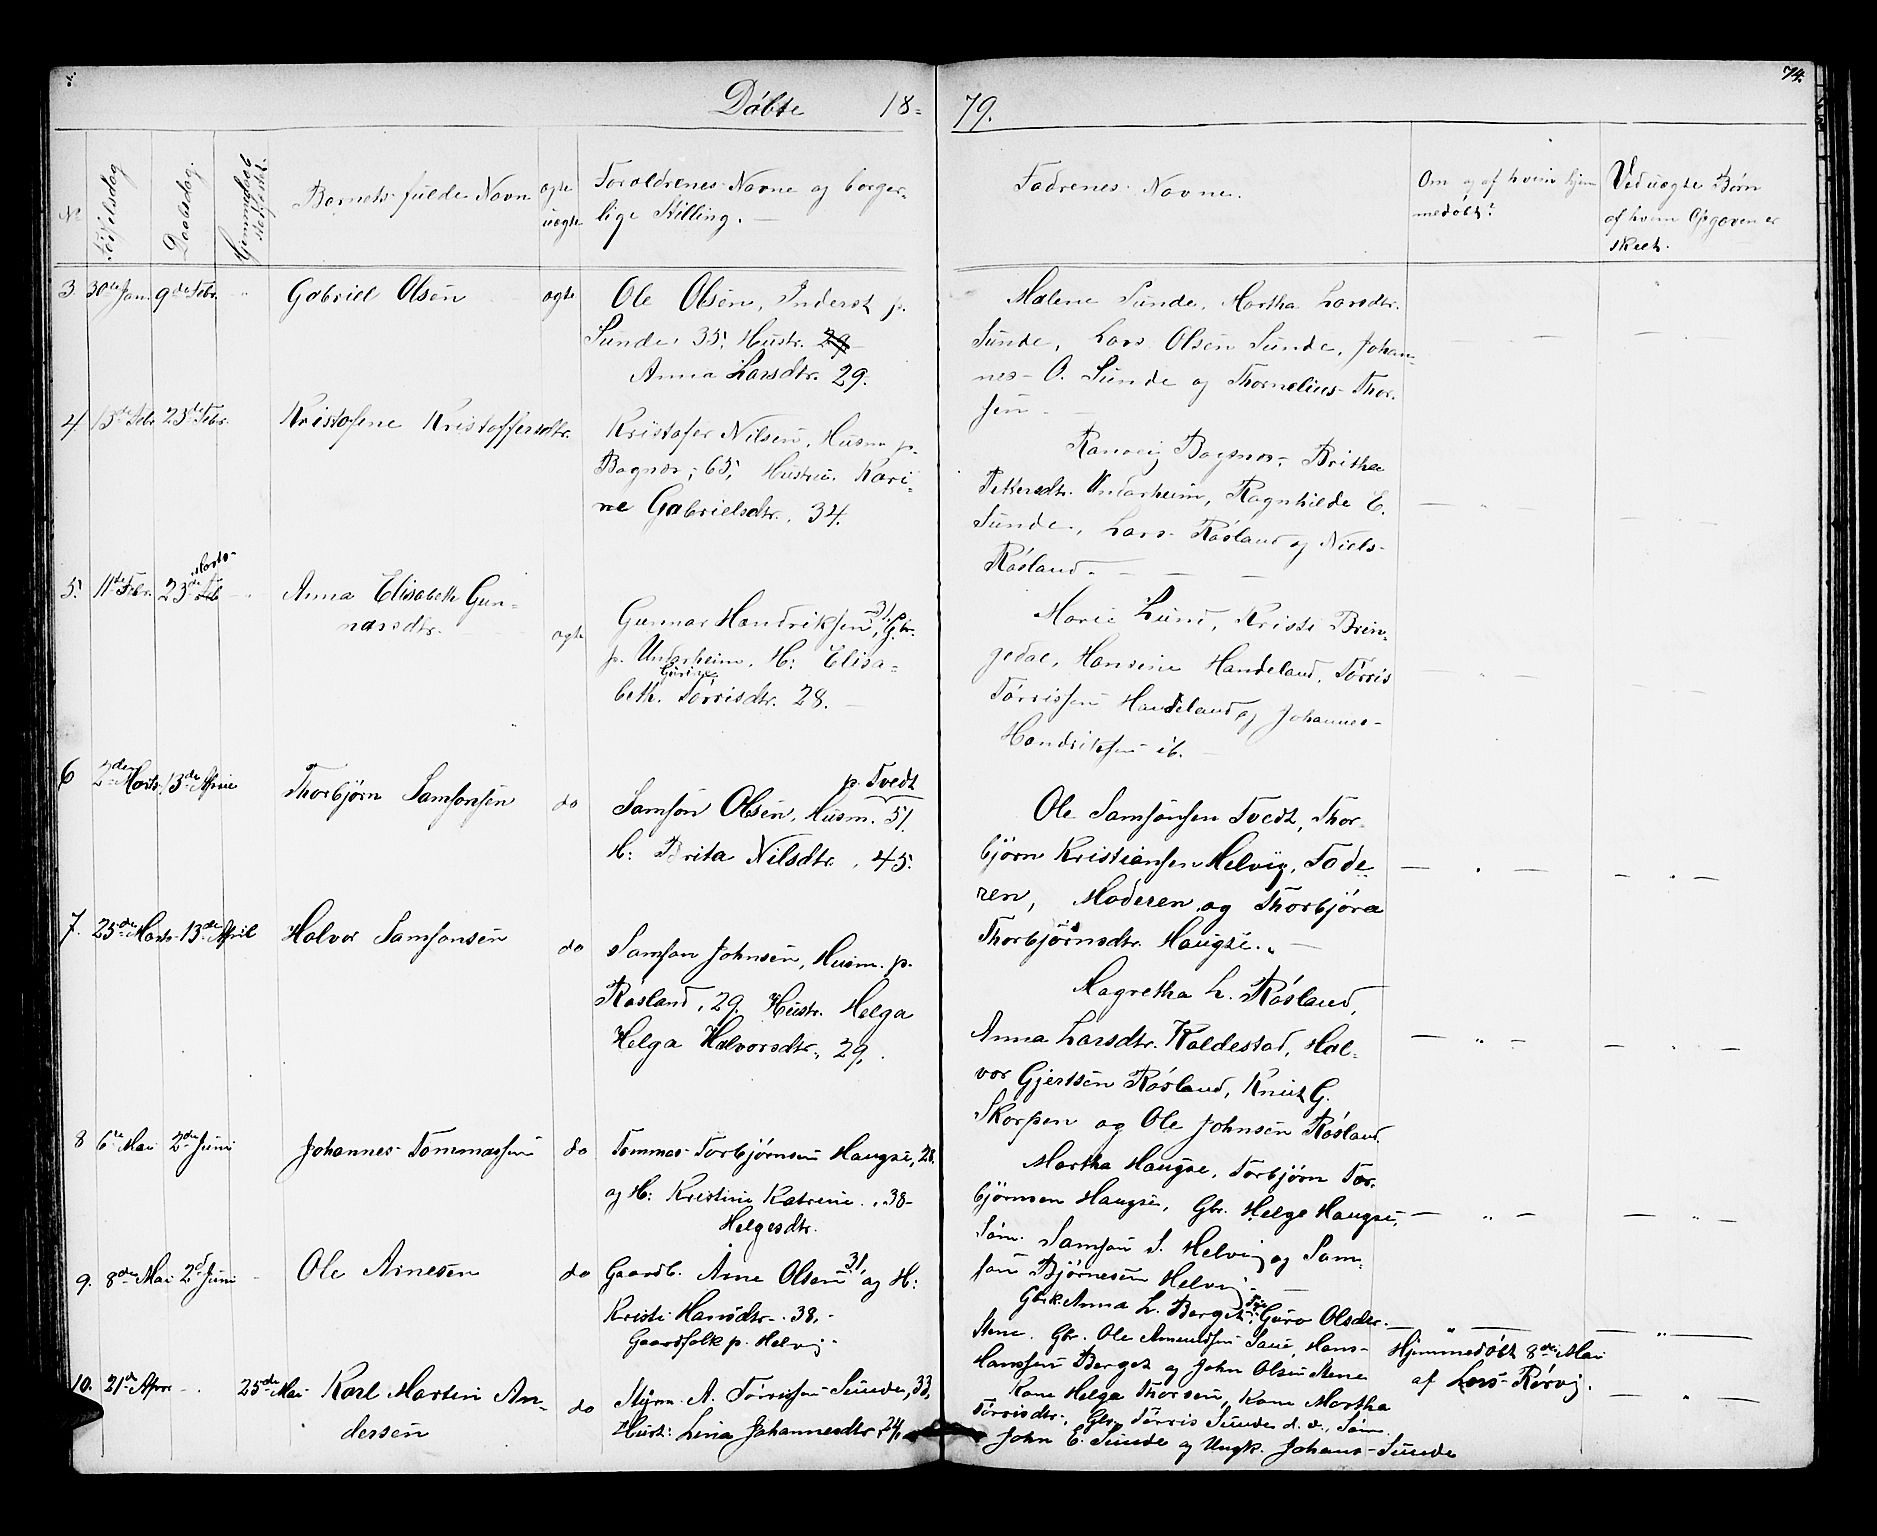 74.
Döbte 18-79.
No
Födselsdag
Daabsdag
Barnets fulde Navn
ægte
uægte
Forældrenes Navne og borger-
lige Stilling.
Fadrenes Navne.
Om og af hvem hjem
medöbt?
Ved uægte Börn
af hvem Opgaven er
skeet.
3 30te Jan. 9de Febr. Gabriel Olsen ægte
Ole Olsen, Inderst p.
Sunde, 35, Hustr. 29
Anna Larsdtr. 29.
Malene Sunde, Martha Larsdtr.
Sunde, Lars Olsen Sunde, Johan-
nes O. Sunde og Thornelius Thor-
sen
4 13de Febr 23de Febr. Kristofene Kristoffersdtr.
Kristofer Nilsen, Husm. p.
Bagnæs, 65, Hustru Kari-
ne Gabrielsdtr., 34.
Ranveig Bagnæs, Britha
Pettersdtr. Undarheim, Ragnhilde E.
Sunde, Lars Røsland og Niels
Røsland.
5. 11te Febr. 23de Feb Marts Anna Elisabeth Gun-
narsdtr. ægte
Gunnar Handriksen, 31, Gbr.
p. Undarheim, H: Elisa-
beth Gurine Tørrisdtr. 28.
Marie Lund, Kristi Brin-
gedal, Hansine Handeland, Tørris
Tørrissen Handeland og Johannes
Handriksen ib.
6 2den Marts 13de April Thorbjørn Samsonsen do
Samson Olsen, Husm. p. Tvedt 51.
H: Brita Nilsdtr., 45.
Ole Samsonsen Tvedt, Thor-
bjørn Kristiansen Helvig, Fade-
ren, Moderen og Thorbjøra
Thorbjørnsdtr. Haugse.
7. 25de Marts 13de April Halvor Samsonsen do
Samson Johnsen, Husm. p.
Røsland, 29, Hustr. Helga
Helga Halvorsdtr., 29,
Magretha L. Røsland,
Anna Larsdtr. Kaldestad, Hal-
vor Gjertsen Røsland, Knut G.
Skorpen og Ole Johnsen Røsland.
8 6te Mai 2den Juni Johannes Tommassen do
Tommas Torbjørnsen Haugse, 28.
og H: Kristine Katrine, 38
Helgesdtr.
Martha Haugse, Torbjørn Tor-
bjørnsen Haugse, Gbr. Helge Haugse,
Søn Samson S. Helvig og Sam-
son Bjørnesen Helvig
9. 8de Mai 2d Juni Ole Arnesen do
Gaardb. Arne Olsen 31, og H:
Kristi Hansdtr. 38,
Gaardfolk p. Helvig
Gbrk. Anna L. Berget, Guro Olsdtr.
Stene, Gbr. Ole Amundsen Saue, Hans
Hanssen Berget og John Olsen Stene
10. 21de Apr. 25de Mai Karl Martin An-
dersen do
Styrm. A. Tørrissen Sunde, 33,
Hust: Lina Johannesdtr, 24,
Kone Helga Thorsen, Kone Martha
Tørrisdtr., Gbr. Tørris Sunde d. æ., Søn
John E. Sunde og Ungk. Johans Sunde
Hjemmedöbt 8de Mai
af Lars Rørvig.